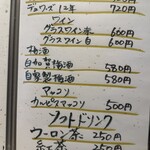 デュワーズ 12年 720円
ワイン
グラスワイン赤 600円
グラスワイン白 600円
梅酒
自家製梅酒 580円
自家製梅酒 580円
マッコリ
カルピスマッコリ 500円
ソフトドリンク
ウーロン茶 250円
250円